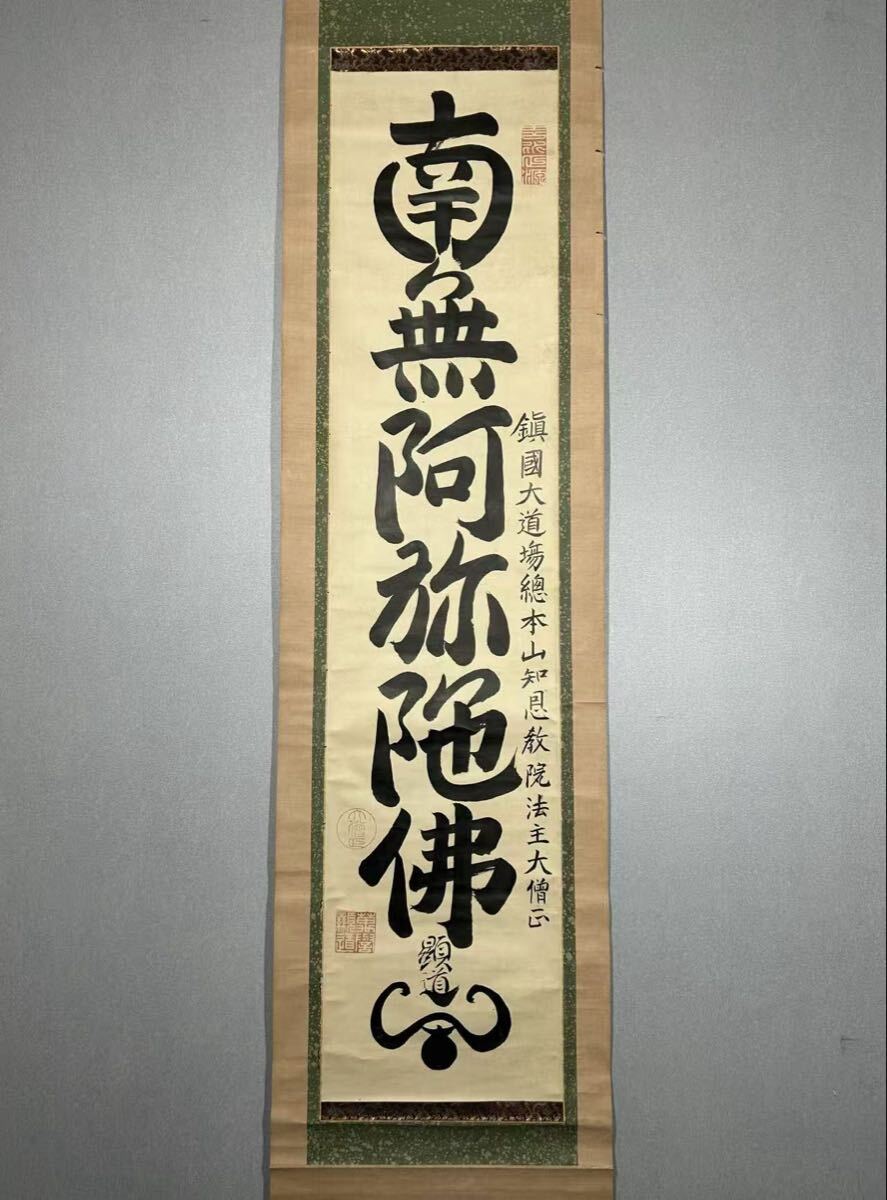 鎭國大道塲總本山知恩教院法主大僧正
南無阿弥陀佛
顕道